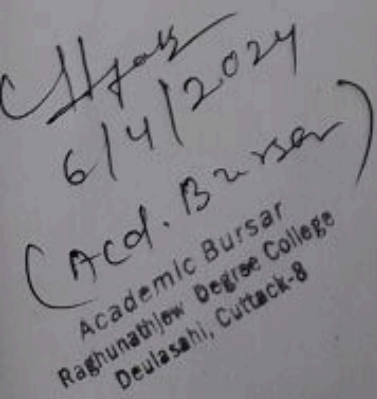 6/4/2024
(Acd. Bursar)
Academic Bursar
Raghunathjew Degree College
Deulasahi, Cuttack-8